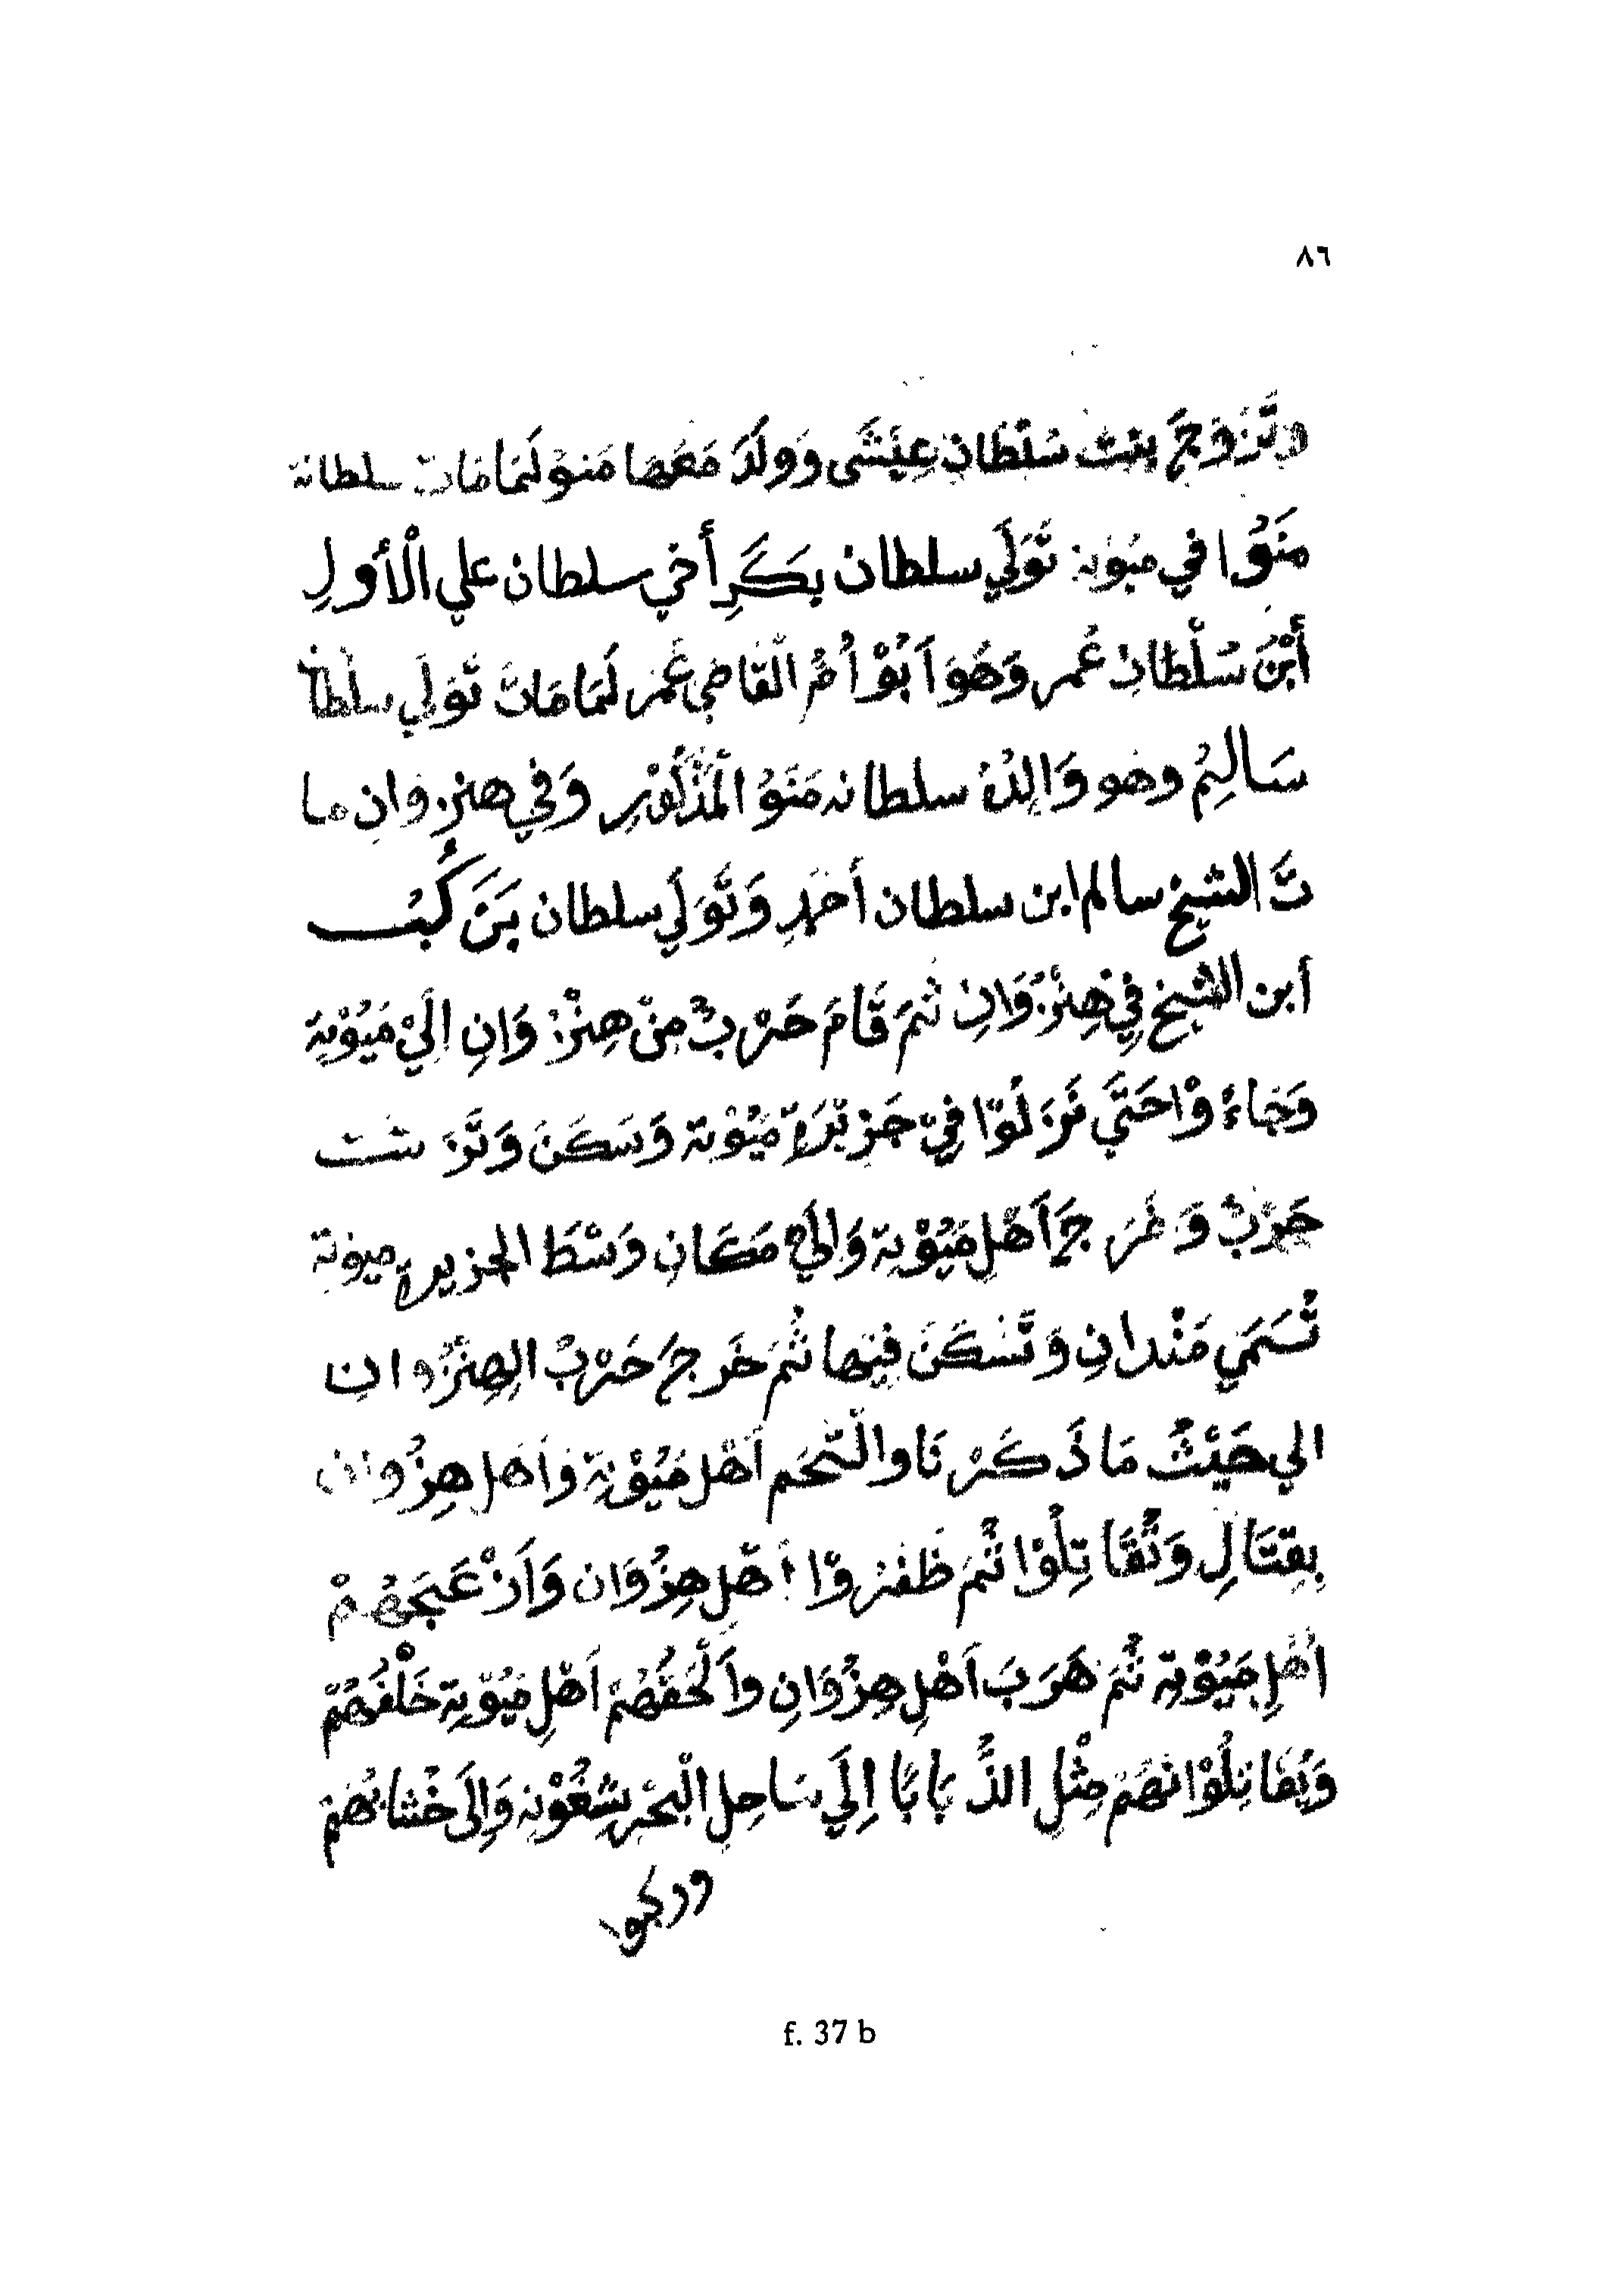 ٨٦
وتَّزَوَجَ بِنْت سُلْطَانِ عِيْسَى وَوَلَدَ مَعَهَا مَنوْ لَمَا مَاتَ سلطانه
مَنَوُا في ميُوْته تَّوَلَي سلطان بَكَرِ أخي سلطان علي الْأَولِ
أَبْنُ سُلْطانِ عُمر وَهُوَ اَبُوْ اُمُ الْقَاضِي عُمَر لَمَا مَاتَ تَّوَلَي سلْطانْ
سَالِمُ وهو وَالِدُ سلطانه مَنَوُ الْمَذْكُوْرِ وَفي هنزوانِ ما
تَّ الشيخ سالم ابن سلطان أحمَدِ وَتَّوَلَي سلطان بَنَ كُبُ
أبن الشيخ فِي هِنْزُوَانِ ثُمَ قَامَ حَرْبُ مِنْ هِنْزُوَانِ اِلَيْ مَيُوْتِة
وَجَاءُوْا حَتَّي نَزَلُوْا فِيْ جَزِيْرَة مَيُوْتة وَسَكَنَ وَتَّزَ شت
حَرْبُ وَخَرَجَ اَهْلِ مَيُوْتة وَالَي مَكَانِ وَسْطَ الجزيرة ميوتة
تُسَمَي مَنْدانِ وَتَّسْكَنَ فيْها ثُمَ خَرجَ حَرْبُ الهِنْزُوانِ
الي حَيْثُ مَا ذَكَرْنَا والْتَّحَم اَهْل مَيُوْتِة وَاَهْل هِنْزُوان
بِقِتَالِ وَتُّقَاتِلُوْا ثُمَ ظَفَرُوْا اَهْلِ هِنْزُوَان وَاَزْعَجَهُمْ
اَهْلِ مَيُوْتِة ثُمَ هَرَبَ اَهْلِ هِنْزُوَانِ واَلْحَقَهُمْ اَهْلِ مَيُوْتِة خَلْفَهُمْ
وَيُقَاتِلُوْانَهُمْ مِثْلِ الذُّبَابَا اِلَي سَاحِلِ الْبَحْرِ شُغُوْنِ وَاِلَى
وركبو
f. 37 b